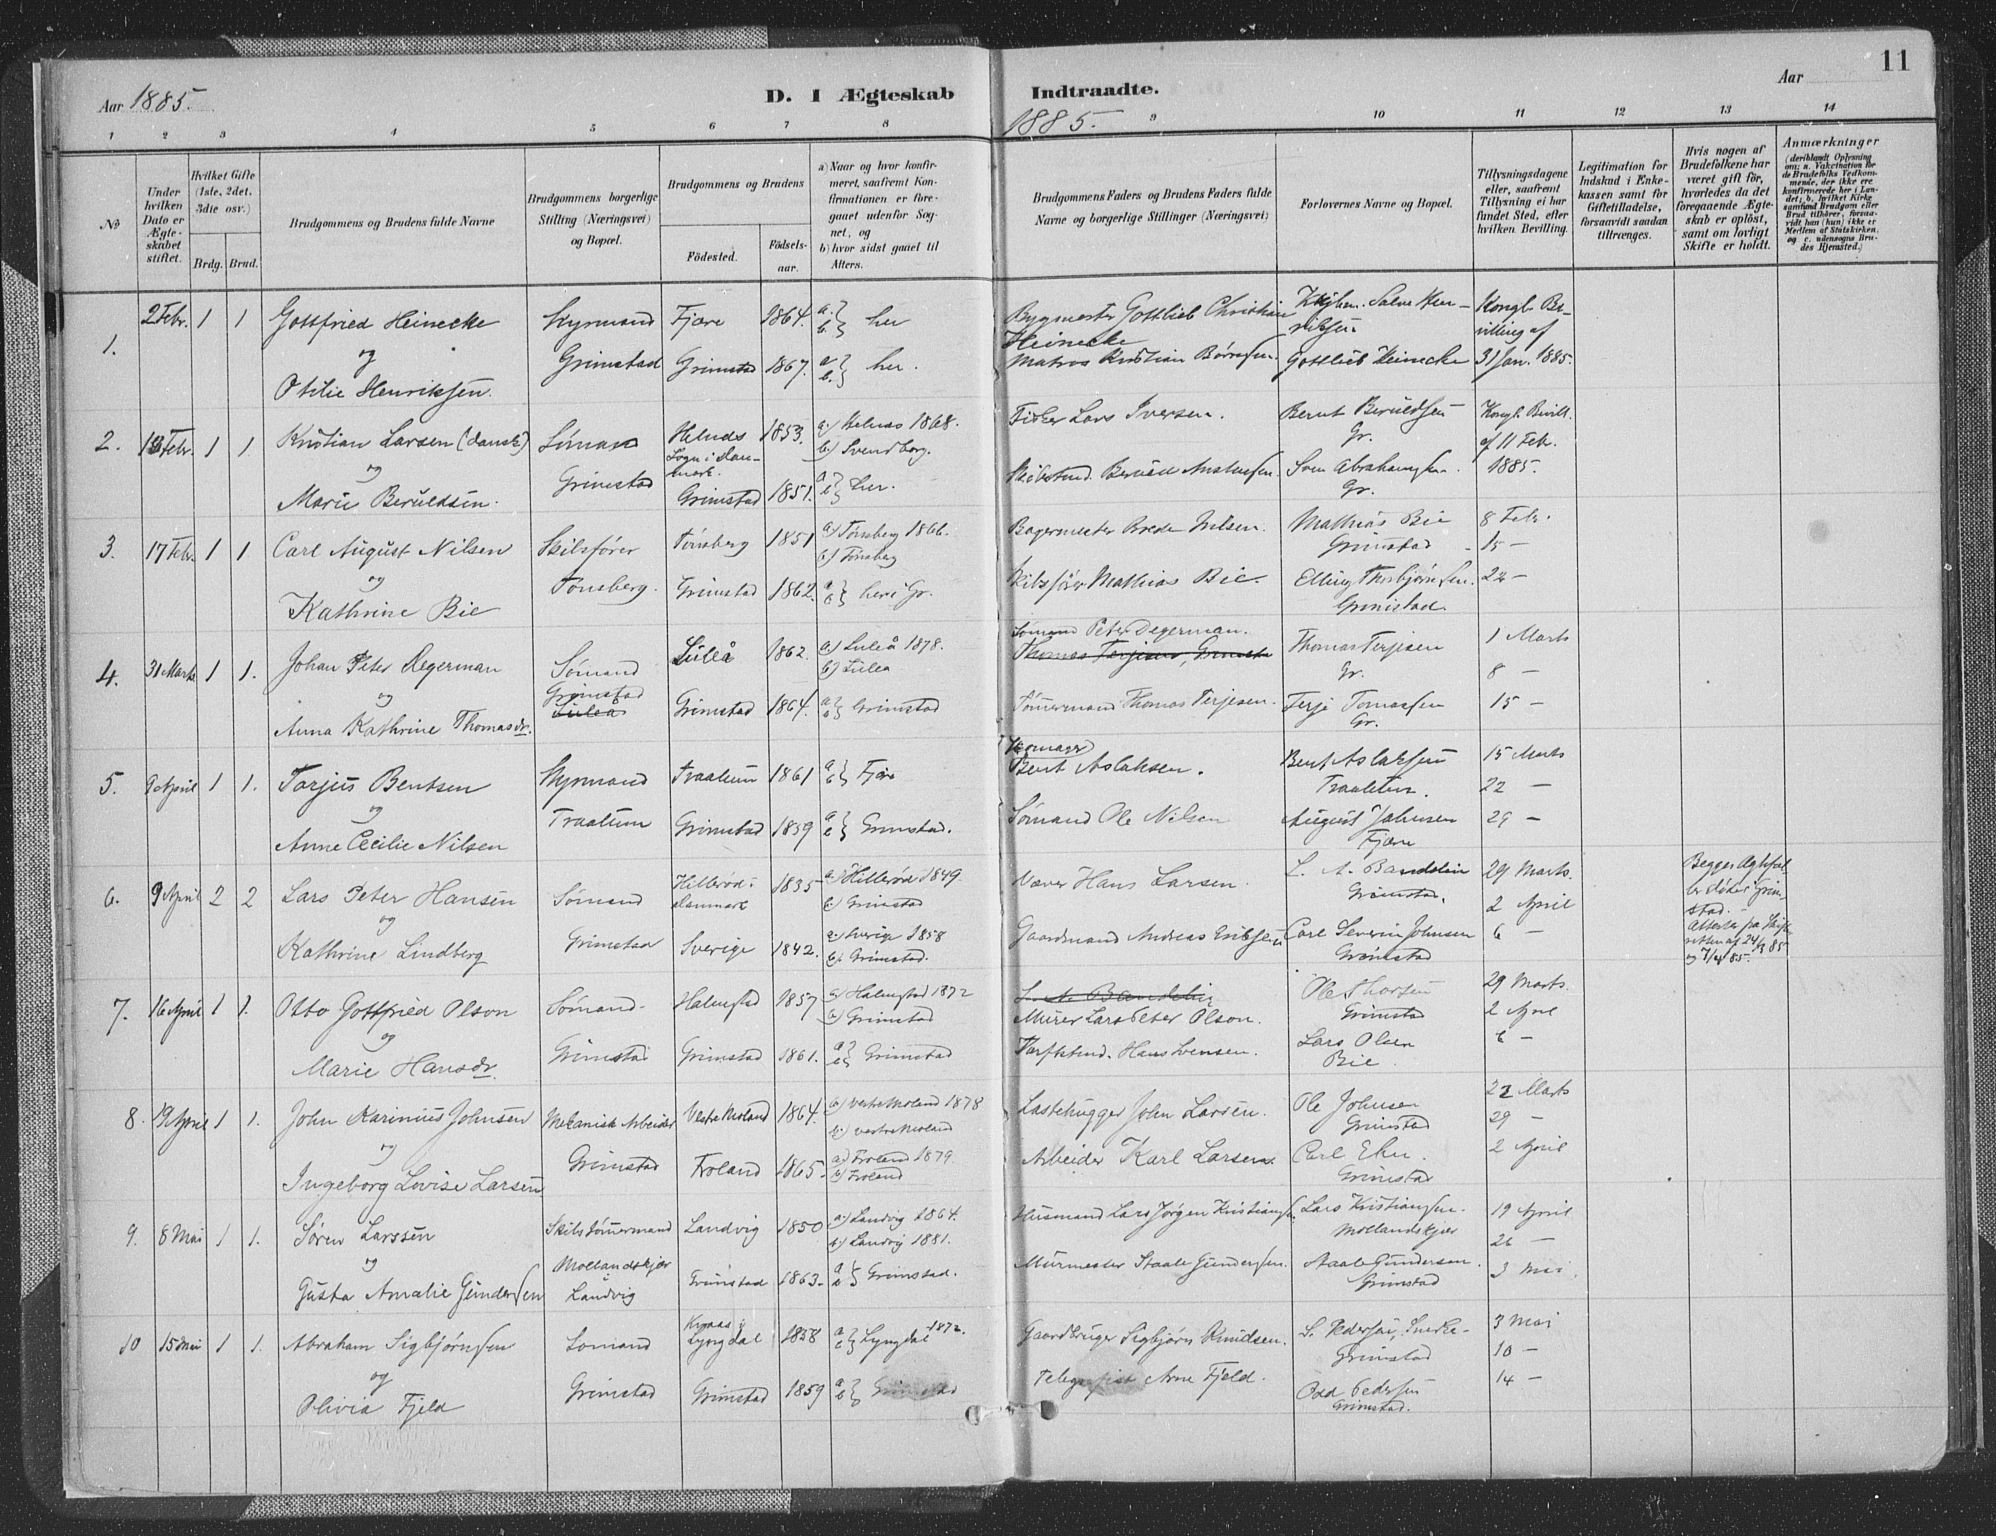 11
Aar 1885.
D. I Ægteskab Indtraadte.
Aar
1885.
1 2 3 4 5 6 7 8 9 10 11 12 13 14
№
Under hvilken Dato er Ægteskabet stiftet.
Hvilket Gifte (1ste, 2det, 3die osv.)
Brdg. Brud.
Brudgommens og Brudens fulde Navne
Brudgommens borgerlige Stilling (Næringsvei) og Bopæl.
Brudgommens og Brudens
Födested.
Födselsaar.
a) Naar og hvor konfirmeret, saafremt Konfirmationen er foregaaet udenfor Sognet, og
b) hvor sidst gaaet til Alters.
Brudgommens Faders og Brudens Faders fulde Navne og borgerlige Stillinger (Næringsvei)
Forlovernes Navne og Bopæl.
Tillysningsdagene eller, saafremt Tillysning ei har fundet Sted, efter hvilken Bevilling.
Legitimation for Indskud i Enkekassen samt for Giftetilladelse, forsaavidt saadan tiltrænges.
Hvis nogen af Brudefolkene har været gift för, hvorledes da det foregaaende Ægteskab er oplöst, samt om lovligt Skifte er holdt.
Anmærkninger
(deriblandt Oplysning om: a. Vakcination for de Brudefolks Vedkommende, der ikke ere konfirmerede her i Landet; b. hvilket Kirkesamfund Brudgom eller Brud tilhörer, forsaavidt han (hun) ikke er Medlem af Statskirken, og c. udensogns Brudes Hjemsted.)
1. 2 Febr. 1 1 Gottfried Heinecke Styrmand Fjære 1864. a.} b.} her Bygmester Gottlieb Christian Heinecke Salve Henriksen Kongl. Bevilling af
og
Otilie Henriksen. Grimstad Grimstad 1867. a.} b.} her. Matros Kristian Børresen. Gottlieb Heinecke 31 Jan. 1885.
2. 13 Febr. 1 1 Kristian Larsen (dansk) Sömand Sogn i Danmark. 1853. b) Svendborg. Fisker Lars Iversen. Bernt Berueldsen Gr. Kongl. Bevill. af 11 Febr.
og
Marie Berueldsen. Grimstad Grimstad 1851. a} b} her. Sven Abrahamsen. Gr. 1885.
3. 17 Febr. 1 1 Carl August Nilsen Skibsfører Tönsberg 1851 a) Tønsberg 1866. b) Tønsberg Bagermester Nilsen. Mathias Bie Grimstad 8 Febr. 15 —
og
Kathrine Bie Tönsberg. Grimstad 1862. a} b} her i Gr. Skibsfører Mathias Bie. Elling Thorbjørnsen. Grimstad. 22 —
4. 31 Marts 1 1. Johan Peter Degerman Sømand Luleå 1862. a) Luleå 1878. b) Lulea Sømand Peter Degerman. Thomas Terjesen, Grimstad Thomas Terjesen Gr. 1 Marts 8 —
og
Anna Kathrine Thomasdr. Grimstad Lulea Grimstad 1864. a} b} Grimstad Tömmermand Thomas Terjesen. Terje Tomassen Gr. 15 —
5. 9 April 1 1. Tarjus Bentsen Styrmand Traalum 1861 a} b} Fjære Bent Aslaksen. Bent Aslaksen 15 Marts 22 —
og
Anne Cecilie Nilsen Traalum Grimstad 1859 a} b} Grimstad. Sømand Ole Nilsen August Johnsen Fjære 29 —
6. 9 April 2 2 Lars Peter Hansen Sømand Hillerød i Danmark 1835 a) Hillerød 1849. b) Grimstad Væver Hans Larsen. L. A. Bandelin Grimstad. 29 Marts. 2 April
og
Kathrine Lindberg Grimstad Sverige 1842. a) Sverige 1858 b) Grimstad. Gaardmand Andreas Eriksen Carl Severin Johnsen Grimstad 6 —
Begges døde i Grimstad. Attester fra Skifteretten af 24/3 85 og 7/4 85.
7. 16 April 1 1. Otto Gottfried Olson Sømand Halmstad 1857 a) Halmstad 1872 b) Grimstad L. A. Bandelin Murer Lars Peter Olson. Ole Thorsen Grimstad 29 Marts. 2 April
og
Marie Hansdr. Grimstad Grimstad 1861. a} b} Grimstad Hans Svensen. Lars Olsen Bie 6 —
8. 19 April 1 1. John Karinius Johnsen Mekanisk Arbeider Vestre Moland 1864. a) Vestre Moland 1878 b.) Vestre Moland Lastehugger John Larsen. Ole Johnsen Grimstad 22 Marts 29 —
og
Ingeborg Lovise Larsen Grimstad Froland 1865. a) Froland 1879. b) Froland Arbeider Karl Larsen. Carl Eken. Grimstad 2 April
9. 8 Mai 1 1. Søren Larssen Skibstömmermand Landvig 1850 a) Landvig 1864. b) Landvig 1881. Husmand Lars Jørgen Kristiansen. Lars Kristiansen. Mollandskjær 19 April 26 —
og
Gusta Amalie Gundersen Mollandskjær Landvig Grimstad 1863. a} b} Grimstad. Murmester Staale Gundersen. Staale Gundersen. Grimstad 3 Mai.
10 15 Mai 1 1. Abraham Sigbjørnsen Sømand Lyngdal 1858 a} b} Lyngdal 1872. Gaardbruger Sigbjørn Knudsen. S. Pedersen, Snedker Grimstad 3 Mai 10 —
og
Olivia Fjeld Grimstad Grimstad 1859 a} b} Grimstad Telegrafist Arne Fjeld. Odd Pedersen Grimstad. 14 —